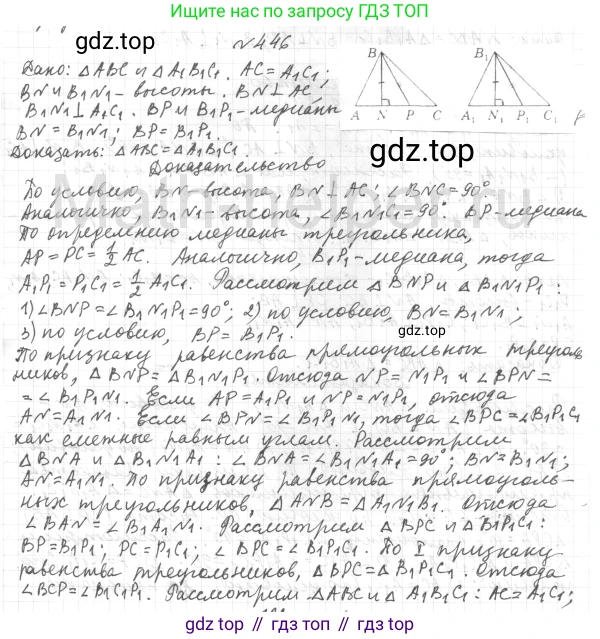 Ищите нас по запросу ГДЗ ТОП
gdz.top
№446
Дано: △ABC и △A₁B₁C₁. AC=A₁C₁;
BN и B₁N₁-высоты. BN⊥AC
B₁N₁⊥A₁C₁. BP и B₁P₁-медианы
BN=B₁N₁; BP=B₁P₁.
Доказать: △ABC=△A₁B₁C₁
B
A N P C
B₁
A₁ N₁ P₁ C₁
gdz.top
Доказательство
По условию, BN-высота, BN⊥AC; ∠BNC=90°
Аналогично, B₁N₁-высота, ∠B₁N₁C₁=90°. BP-медиана
По определению медианы треугольника,
AP=PC=1/2 AC. Аналогично, B₁P₁-медиана, тогда
A₁P₁=P₁C₁=1/2 A₁C₁. Рассмотрим △BNP и △B₁N₁P₁:
1) ∠BNP=∠B₁N₁P₁=90°; 2) по условию, BN=B₁N₁;
3) по условию, BP=B₁P₁.
gdz.top
По признаку равенства прямоугольных треуголь
ников, △BNP=△B₁N₁P₁. Отсюда NP=N₁P₁ и ∠BPN=
=∠B₁P₁N₁. Если AP=A₁P₁ и NP=N₁P₁, отсюда
AN=A₁N₁. Если ∠BPN=∠B₁P₁N₁, тогда ∠BPC=∠B₁P₁C₁
как смежные равным углам. Рассмотрим
△BNA и △B₁N₁A₁: ∠BNA=∠B₁N₁A₁=90°; BN=B₁N₁;
AN=A₁N₁. По признаку равенства прямоуголь-
ных треугольников, △ANB=△A₁N₁B₁. Отсюда
∠BAN=∠B₁A₁N₁. Рассмотрим △BPC и △B₁P₁C₁:
BP=B₁P₁; PC=P₁C₁; ∠BPC=∠B₁P₁C₁. По I признаку
равенства треугольников, △BPC=△B₁P₁C₁. Отсюда
∠BCP=∠B₁C₁P₁. Рассмотрим △ABC и △A₁B₁C₁: AC=A₁C₁;
gdz.top // gdz.top // gdz.top // gdz.top // gdz.top